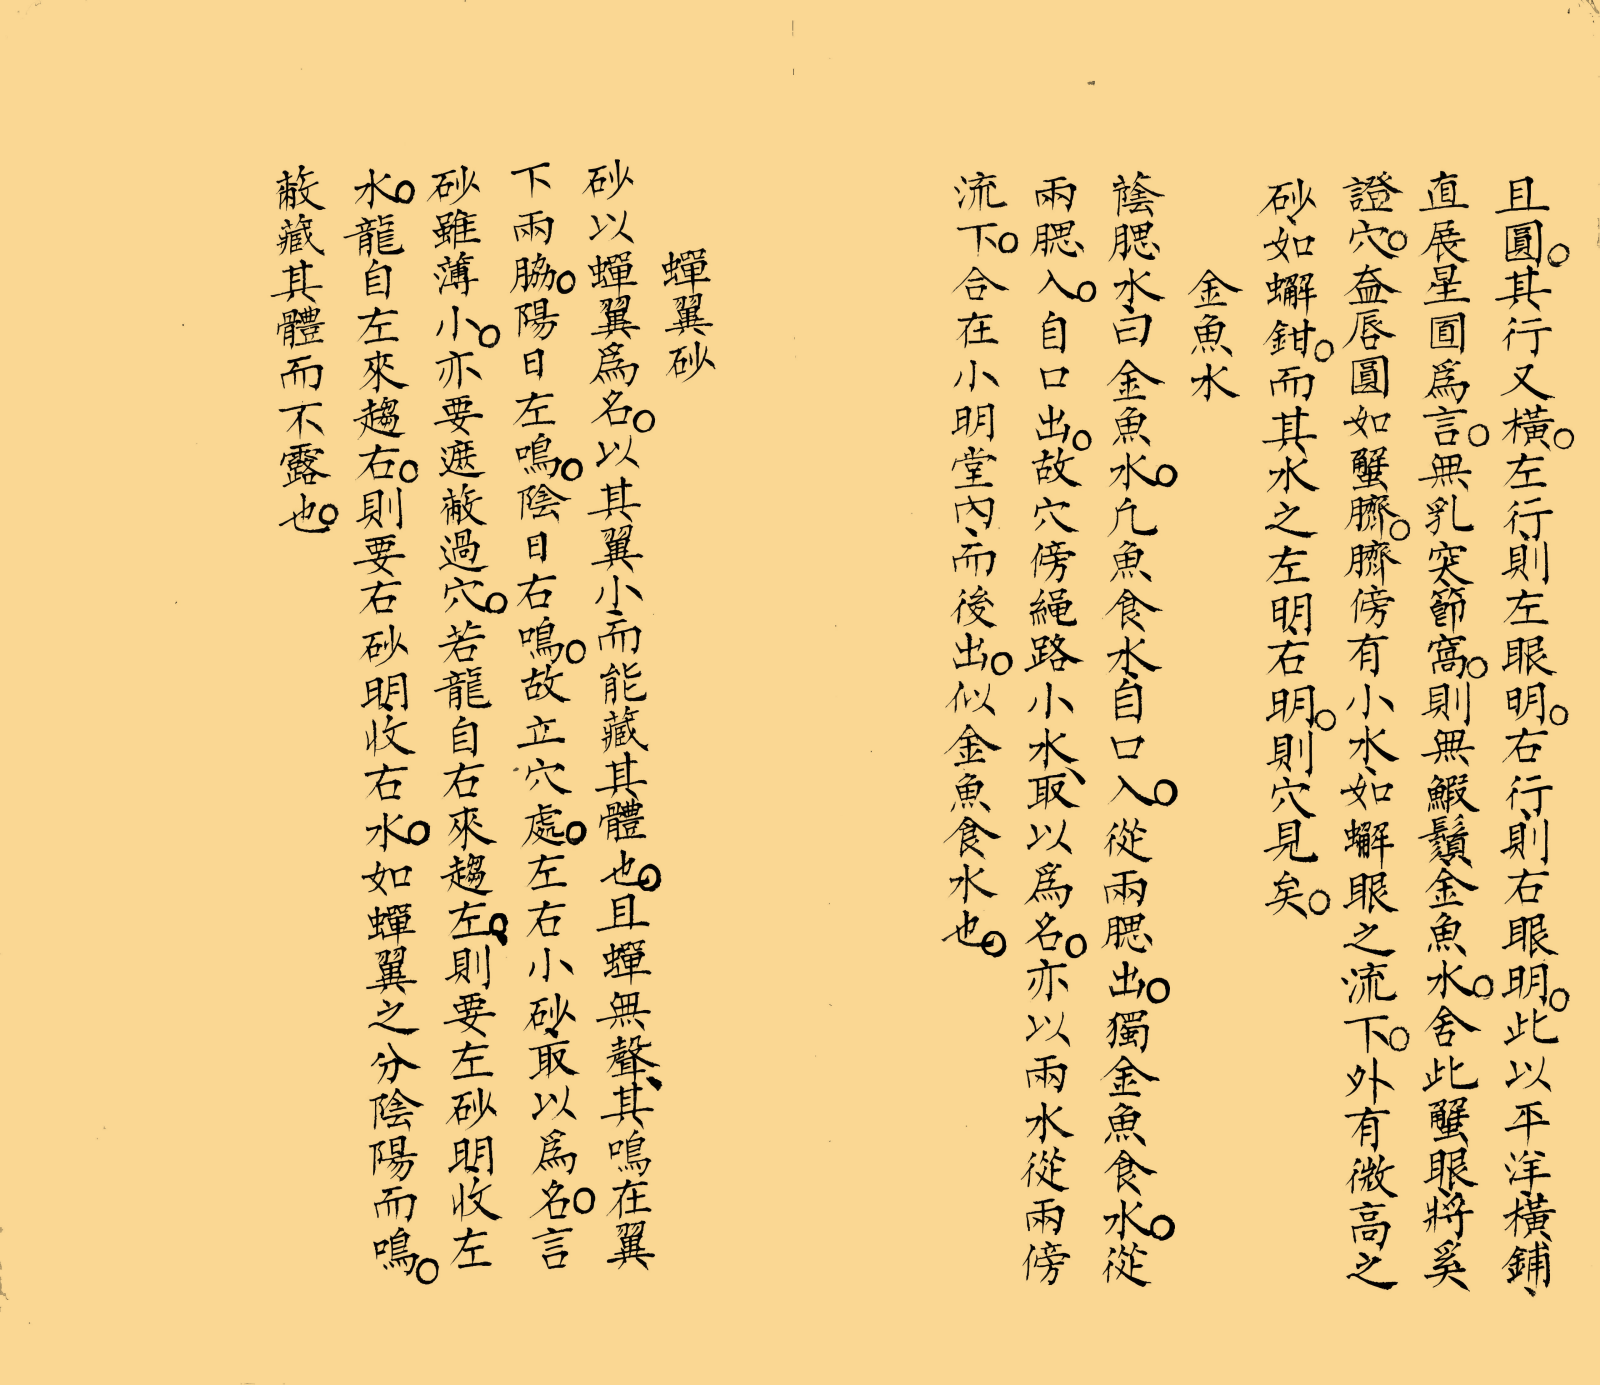 且圓。其行又橫。左行、則左眼明。右行、則右眼明。此以平洋、橫鋪、
直展星面爲言。無乳突節窩。則無鰕鬚、金魚水。舍此蟹眼、將奚
證穴。益唇圓如蟹臍。臍傍有小水、如蠏眼之流下。外有微高之
砂、如蠏鉗。而其水之左明、右明。則穴見矣。
金魚水
蔭腮水、曰金魚水。凡魚食水、自口入。從兩腮出。獨金魚食水。從
兩腮入。自口出。故穴傍繩路小水、取以爲名。亦以兩水從兩傍
流下。合在小明堂內、而後出。似金魚食水也。
蟬翼砂
砂以蟬翼爲名。以其翼小、而能藏其體也。且蟬無聲、其鳴在翼
下兩脇。陽日左鳴。陰日右鳴。故立穴處。左右小砂、取以爲名。言
砂雖薄小。亦要遮蔽過穴。若龍自右來趨左。則要左砂明、收左
水。龍自左來趨右。則要右砂明、收右水。如蟬翼之分陰陽而鳴。
蔽藏其體而不露也。